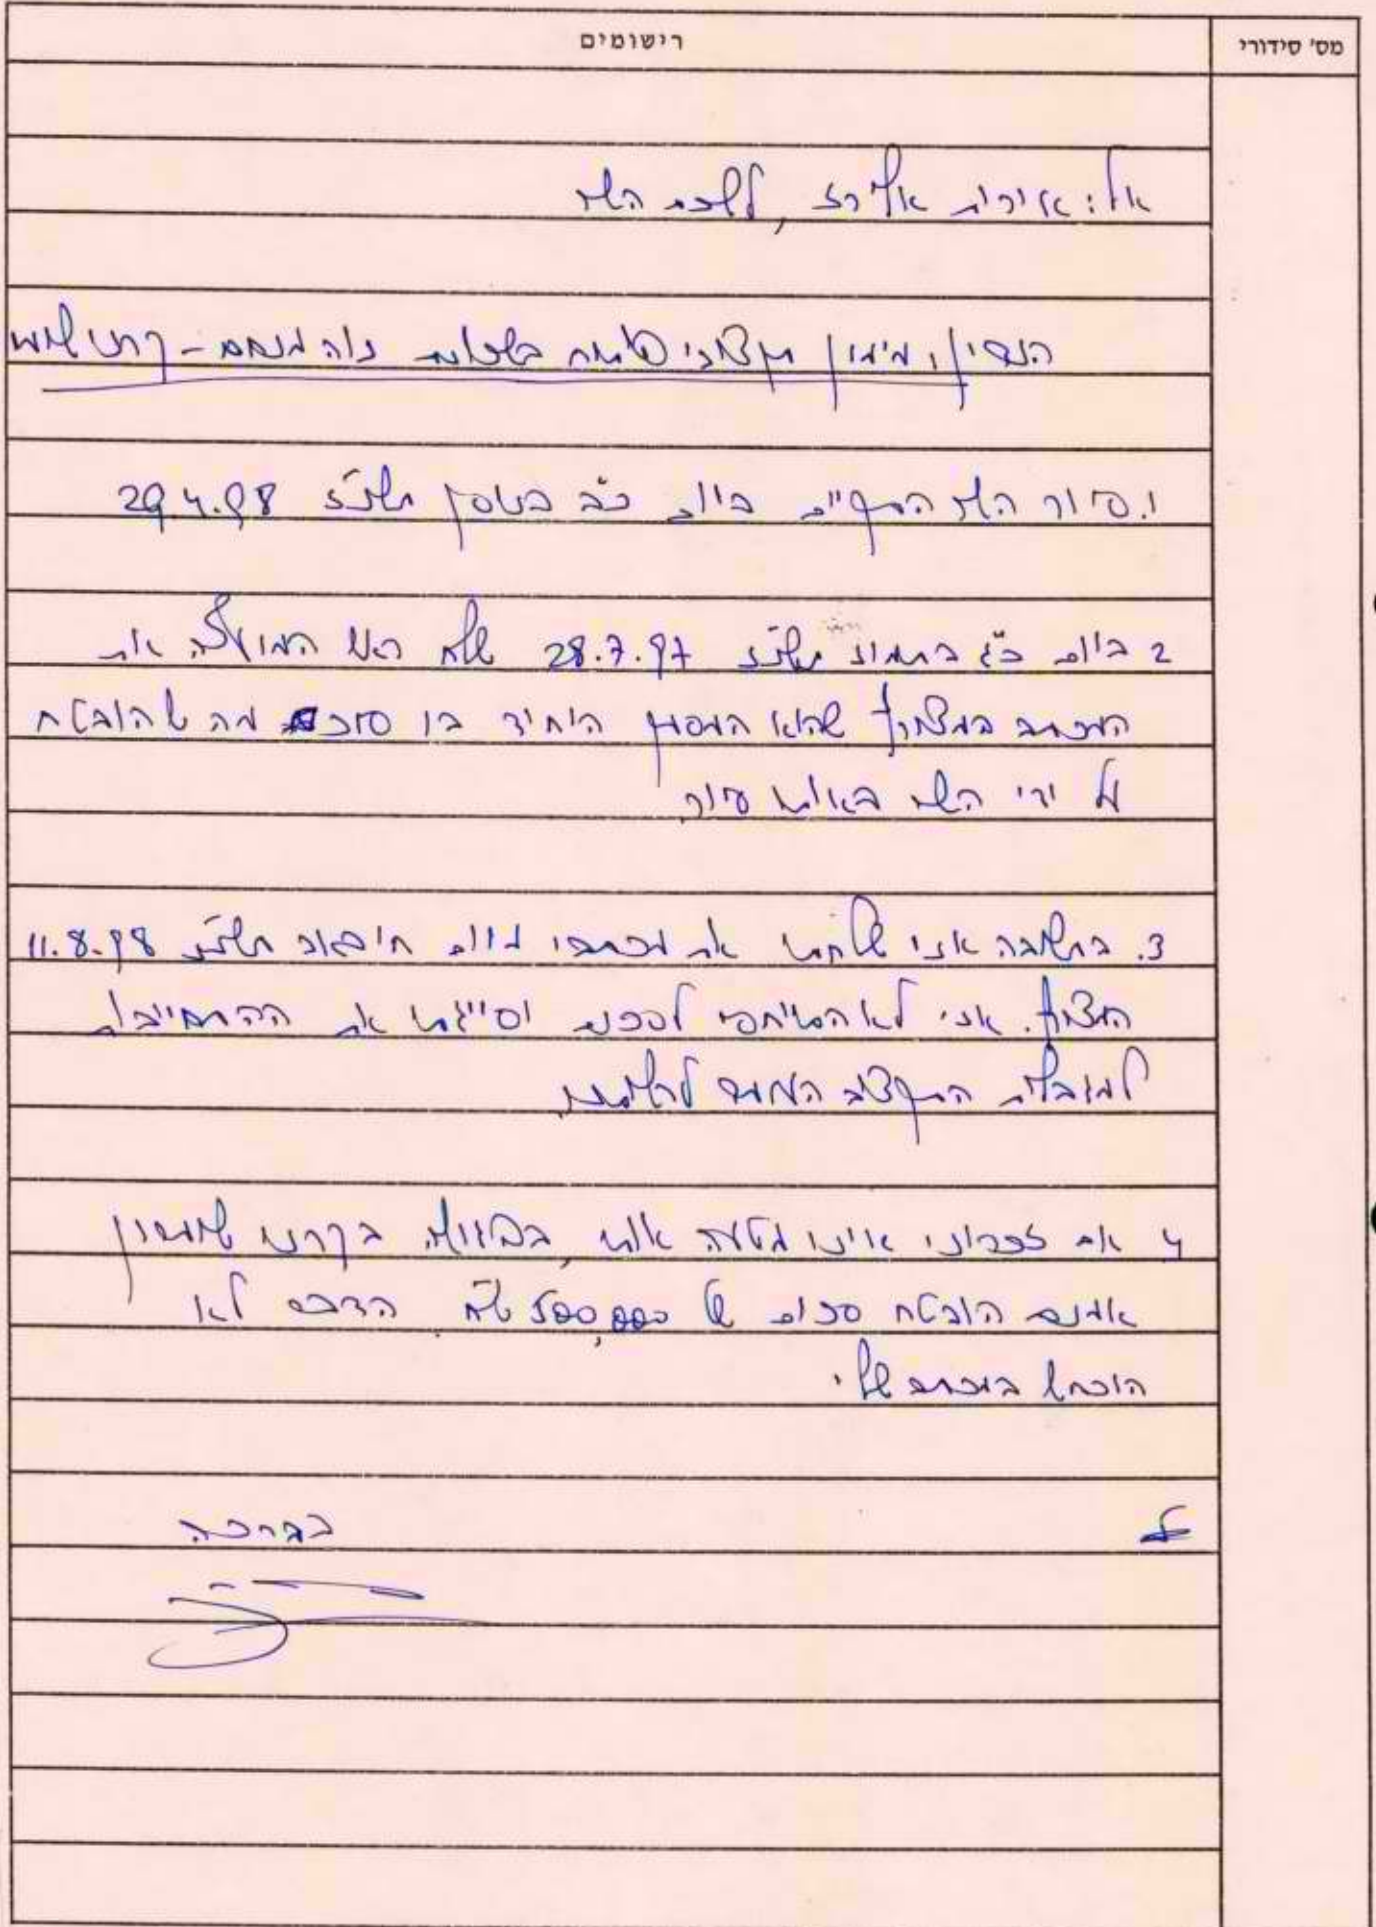 רישומים
מס' סידורי
אל: אירית אלירז, לשכת השר
הנדון: מימון תקציבי פיתוח בשכונת נוה מנחם - קרני שומ
1. סיור השר התקיים ביום כ"ב בניסן תשנ"ז 29.4.98
2 ביום כ"ג בתמוז תשנ"ז 28.7.97 שלח ראש המועצה את
המכתב המצורף שהוא המסמך היחיד בו סוכם מה שהובטח
על ידי השר באותו סיור
3. בתשובה אני שלחתי את מכתבי מיום ח' באב תשנ"ז 11.8.98
המצורף. אני לא התיחסתי לסכום וסייגתי את ההתחייבות
למגבלות התקציב העומד לרשותנו.
4 אם זכרוני אינו מטעה אותי, בקרני שומרון
אמנם הובטח סכום של 500,000 ש"ח. הדבר לא
הוכחש במכתב שלי.
בברכה